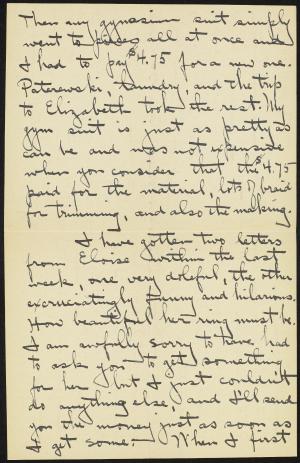 Then my gymnasium suit simply
went to pieces all at once and
I had to pay $4.75 for a new one.
Paterewski, laundry, and the trip
to Elizabeth took the rest. My
gym suit is just as pretty as
can be and was not expensive
when you consider that the $4.75
paid for the material, lots of braid
for trimming, and also the making.
I have gotten two letters
from Eloise within the last
week, one very doleful, the other
excruciatingly funny and hilarious.
How beautiful her ring must be.
I am awfully sorry to have had
to ask you to get something
for her but I just couldn't
do anything else, and I'll send
you the money just as soon as
I get some. When I first